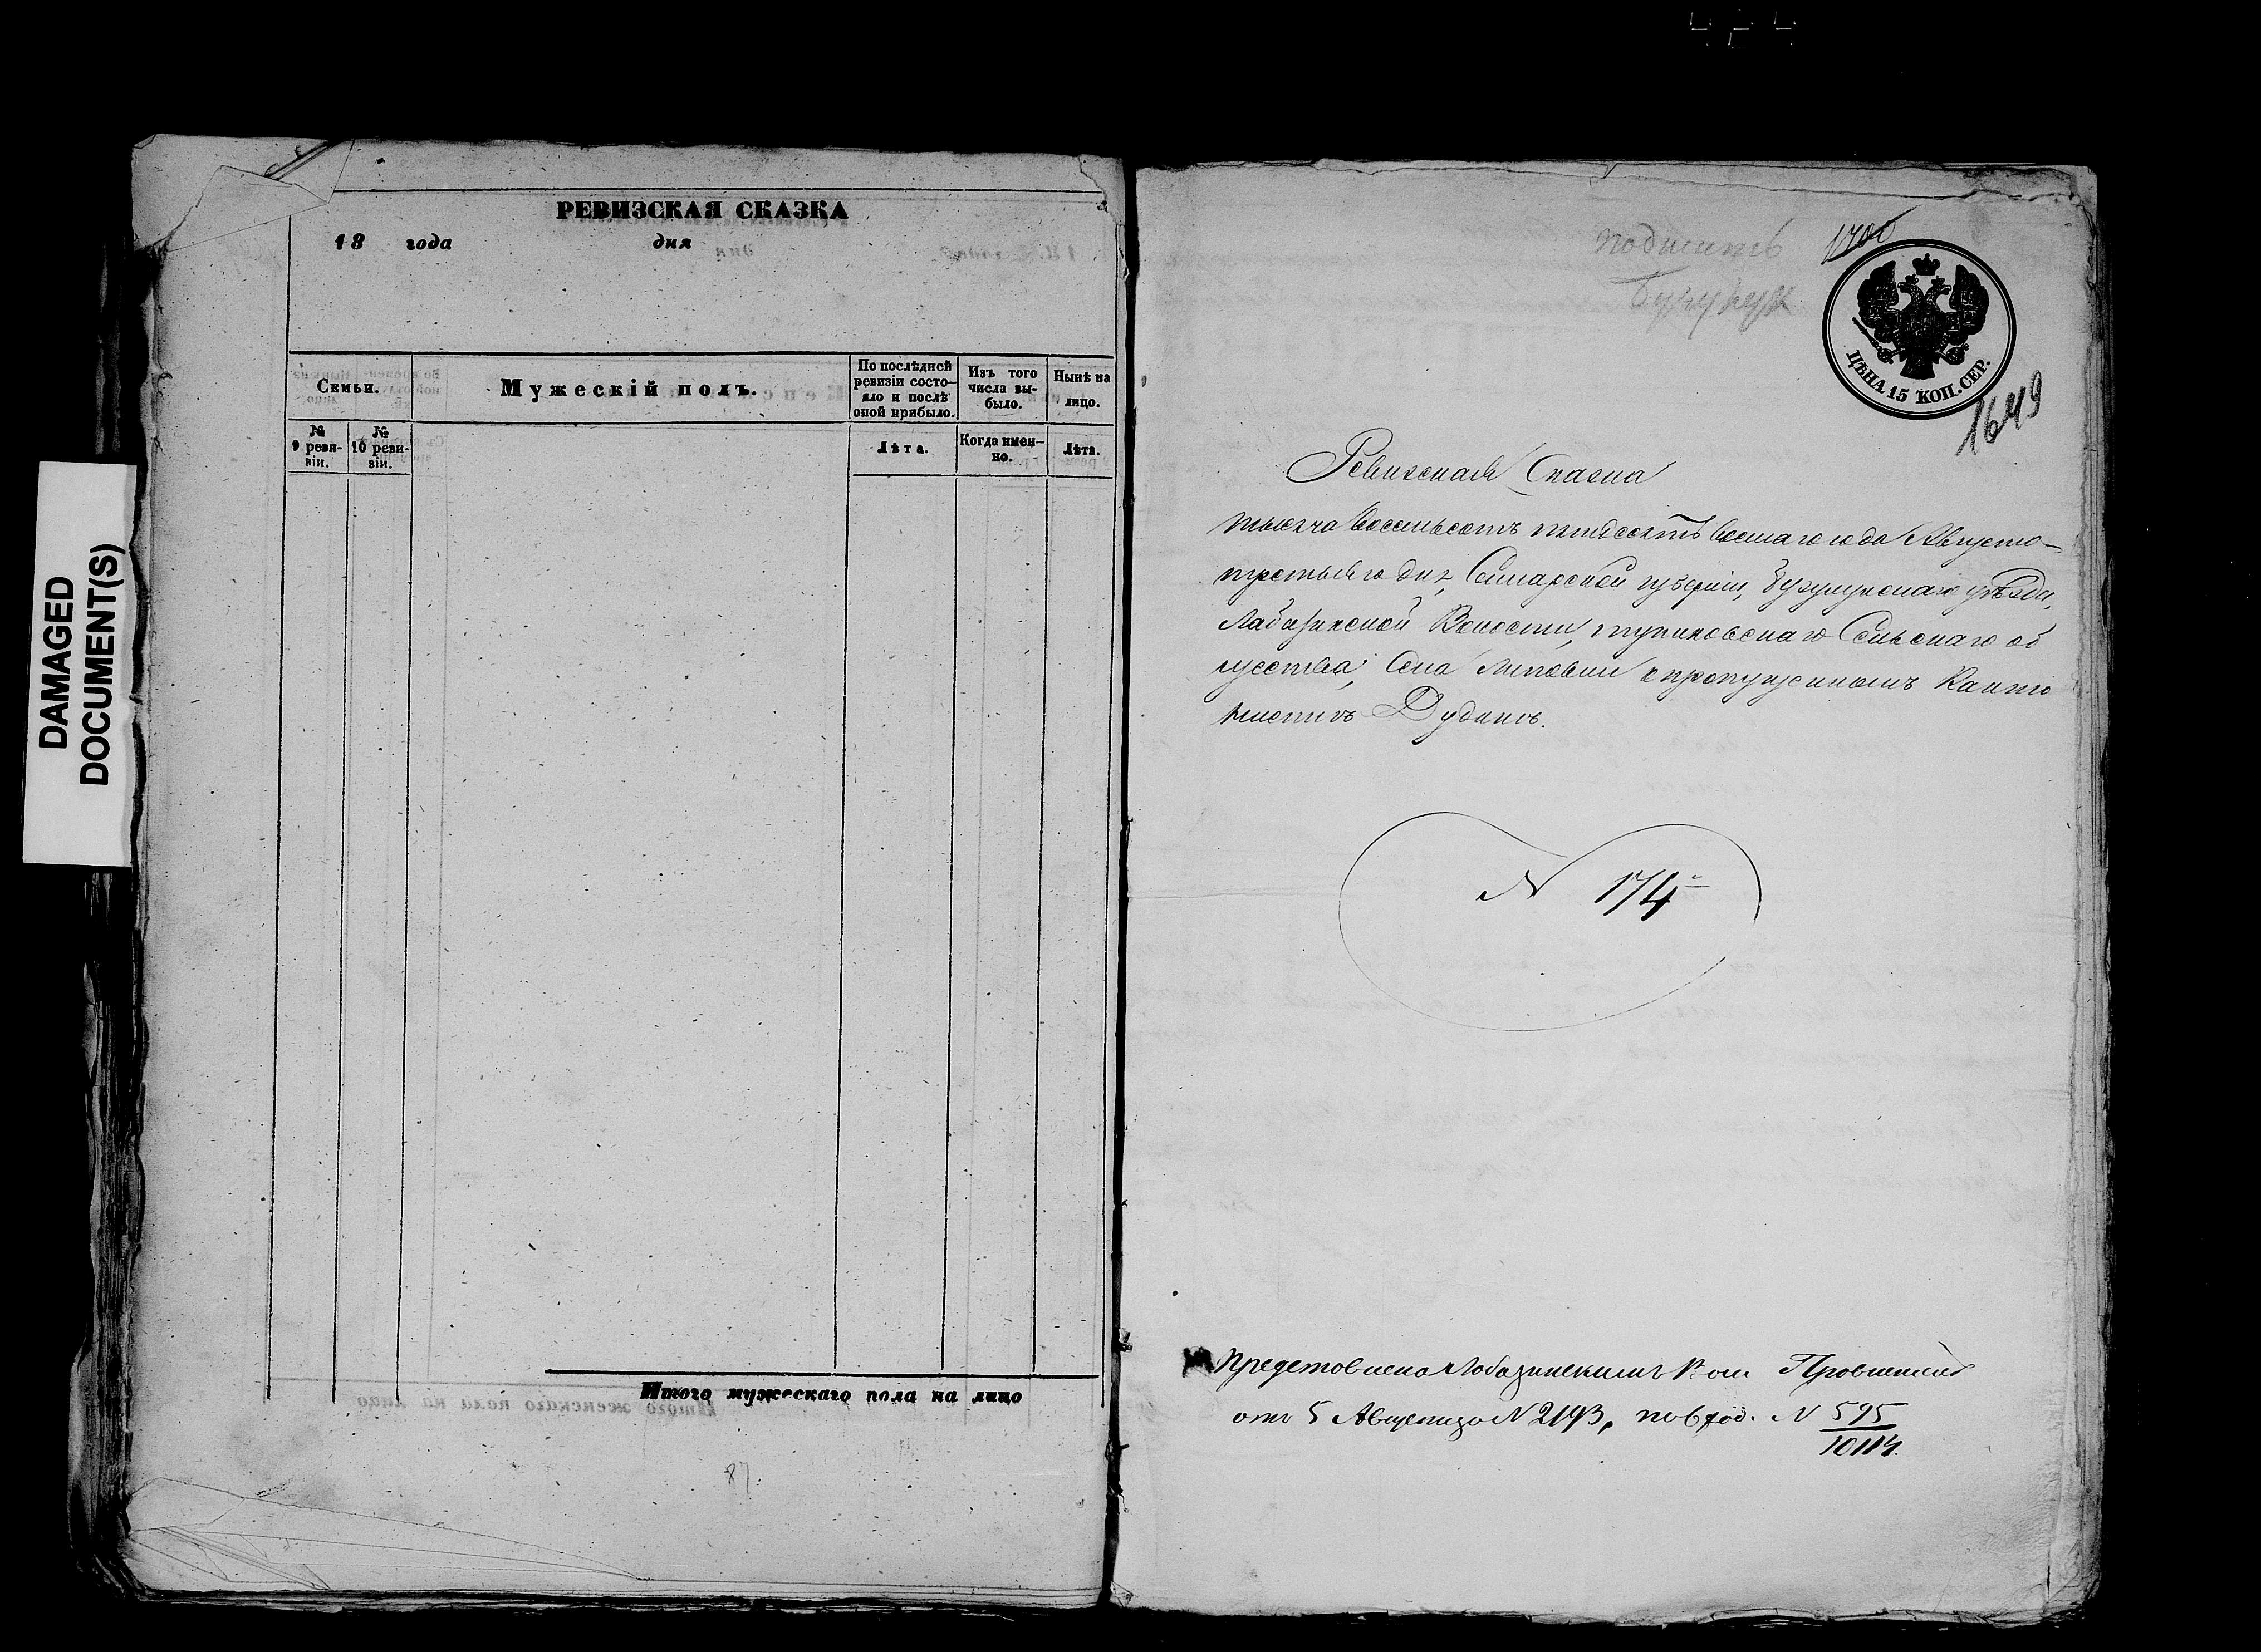 DAMAGED
DOCUMENT(S)
РЕВИЗСКАЯ СКАЗКА
18 года дня
Семьи.
Мужескій полъ.
По послѣдней
ревизіи состо-
яло и послѣ
оной прибыло.
Изъ того
числа вы-
было.
Нынѣ на
лицо.
№
9 реви-
зіи.
№
10 реви-
зіи.
Лѣта.
Когда имен-
но.
Лѣта.
Итого мужескаго пола на лицо
87.
1700
ЦѢНА 15 КОП. СЕР.
1649
Ревизская Сказка
тысяча восемьсотъ пятьдесятъ восмаго года Августа
третьяго дня, Самарской губерніи, Бузулукскаго уѣзда,
Лабазинской Волости, Сельскаго об
щества, Села Липовки о пропущенномъ Канто
нистѣ Дудинѣ.
N 174
Представлена Лобазинскимъ Вол. Правленіемъ
отъ 5 Августа за N 2193, по вход. N 595
10114.